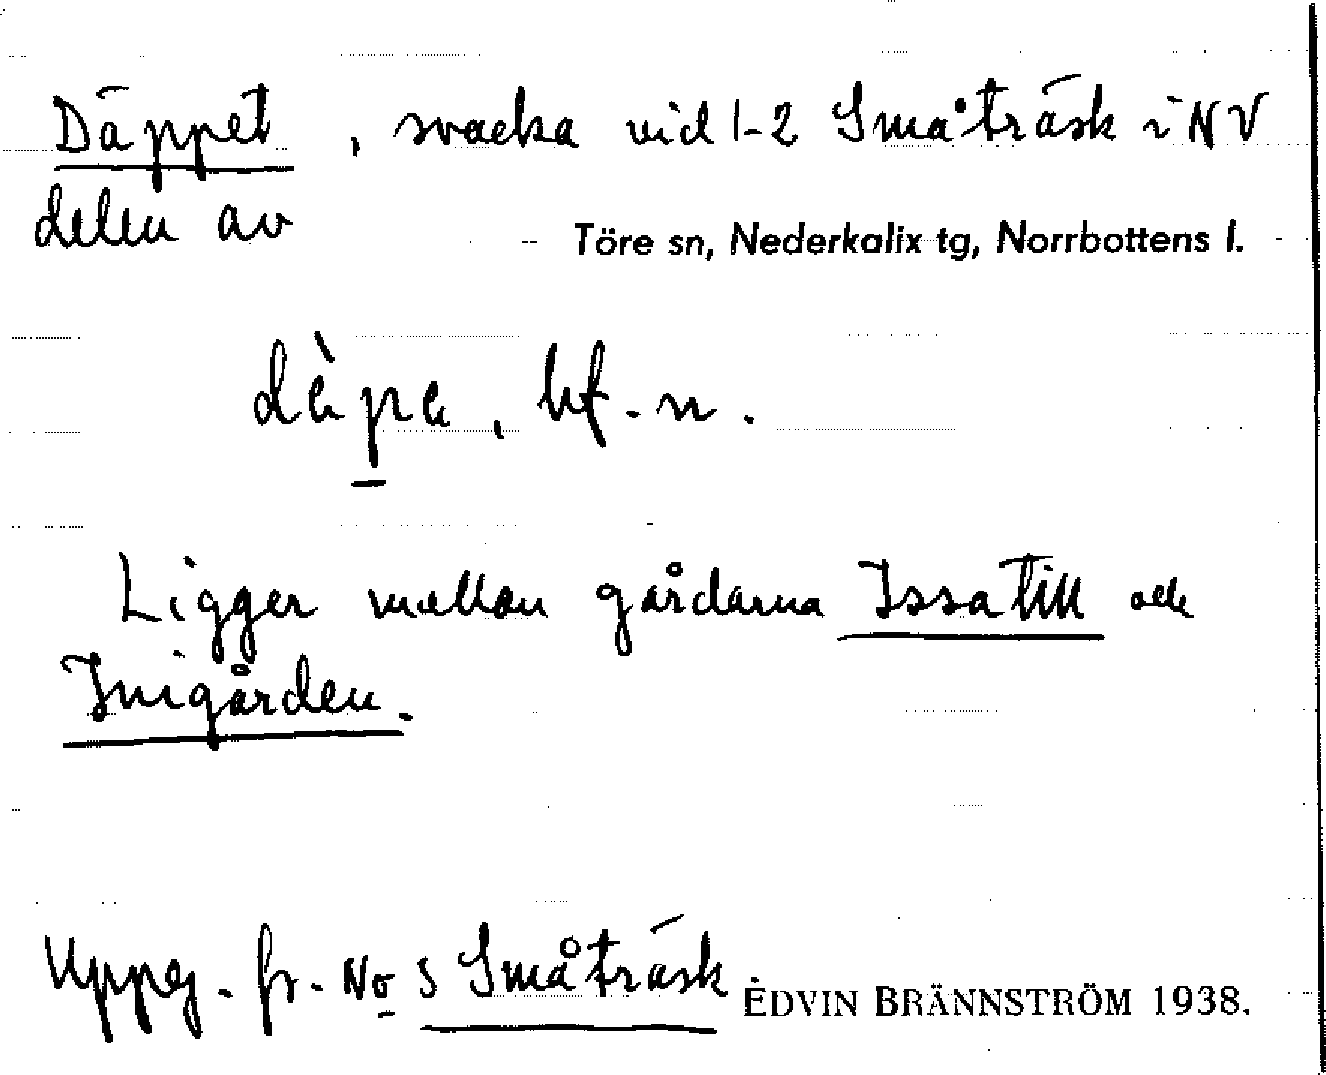 Däppet, svacka vid 1-2 Småträsk i NV
delen av Töre sn, Nederkalix tg, Norrbottens l.
dèpe, bf. n.
Ligger mellan gårdarna Issatill och
Inigården.
Uppg. fr. No 5 Småträsk EDVIN BRÄNNSTRÖM 1938.